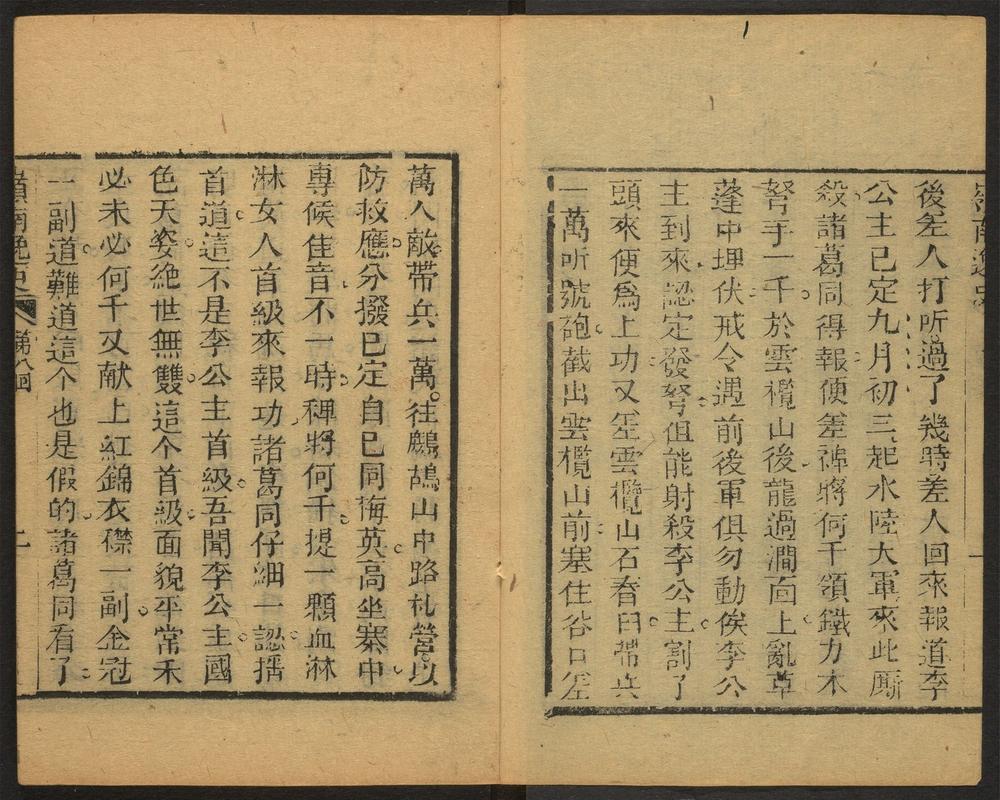 嶺南逸史
一
後差人打听過了幾時差人回來報道李
公主已定九月初三起水陸大軍來此厮
殺諸葛同得報便差裨將何千領鐵力木
弩手一千於雲欖山後龍過澗面上亂草
蓬中埋伏戒令遇前後軍俱勿動俟李公
主到來認定發弩但能射殺李公主割了
頭來便爲上功又差雲欖山石舂臼帶兵
一萬听號砲截出雲欖山前塞住谷口差
萬人敵帶兵一萬往鷓鴣山中路札營以
防救應分撥已定自已同梅英高坐寨中
專候佳音不一時稗將何千提一顆血淋
淋女人首級來報功諸葛同仔細一認搖
首道這不是李公主首級吾聞李公主國
色天姿絶世無雙這个首級面貌平常禾
必未必何千又献上紅錦衣襟一副金冠
一副道難道這个也是假的諸葛同看了
嶺南逸史
第八回
二